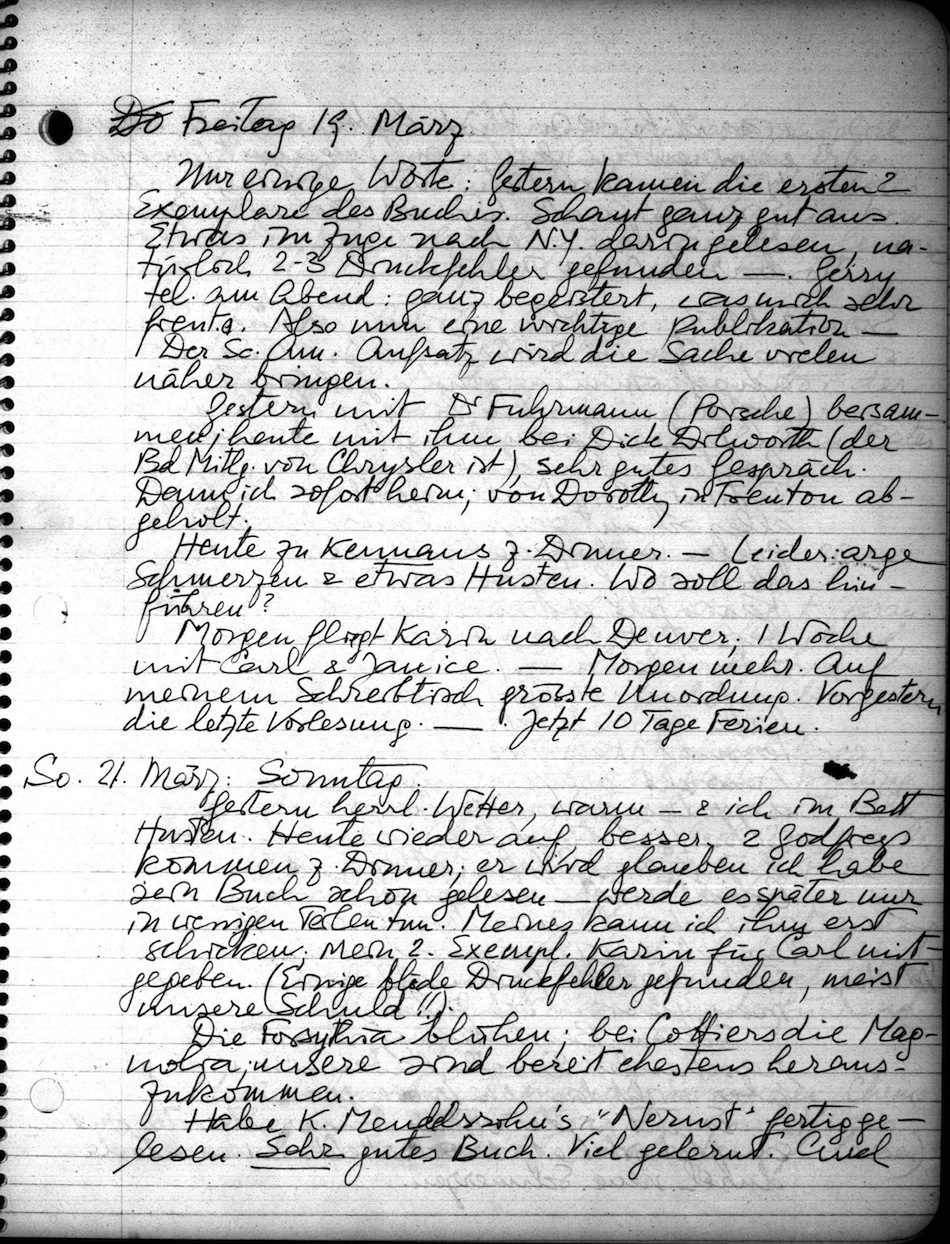 Do Freitag 19. März
Nur einige Worte: Gestern kamen die ersten 2
Exemplare des Buches. Schaut ganz gut aus.
Etwas im Zuge nach N.Y. darin gelesen, na-
türlich 2-3 Druckfehler gefunden —. Gerry
tel. am Abend: ganz begeistert, was mich sehr
freute. Also nun eine wichtige Publikation —
Der Sc. Am. Aufsatz wird die Sache vielen
näher bringen.
Gestern mit Dr Fuhrmann (Porsche) beisam-
men; heute mit ihm bei Dick Dilworth (der
Bd Mitg. von Chrysler ist), sehr gutes Gespräch.
Dann ich sofort heim; von Dorothy in Trenton ab-
geholt.
Heute zu Kennans z. Dinner. — Leider: arge
Schmerzen & etwas Husten. Wo soll das hin-
führen?
Morgen fliegt Karin nach Denver, 1 Woche
mit Carl & Janice. — Morgen mehr. Auf
meinem Schreibtisch grösste Unordnung. Vorgestern
die letzte Vorlesung. — . Jetzt 10 Tage Ferien.
So. 21. März: Sonntag
Gestern herrl. Wetter, warm — & ich im Bett
Husten. Heute wieder auf, besser. 2 Godfreys
kommen z. Dinner; er wird glauben ich habe
sein Buch schon gelesen — werde es später nur
in wenigen Teilen tun. Meines kann ich ihm erst
schicken; mein 2. Exempl. Karin für Carl mit-
gegeben. (Einige blöde Druckfehler gefunden, meist
unsere Schuld!!).
Die Forsythia blühen; bei die Mag-
nolia; unsere sind bereit ehestens heraus-
zukommen.
Habe K. Mendelssohn's "Nernst" fertig ge-
lesen. Sehr gutes Buch. Viel gelernt. Und